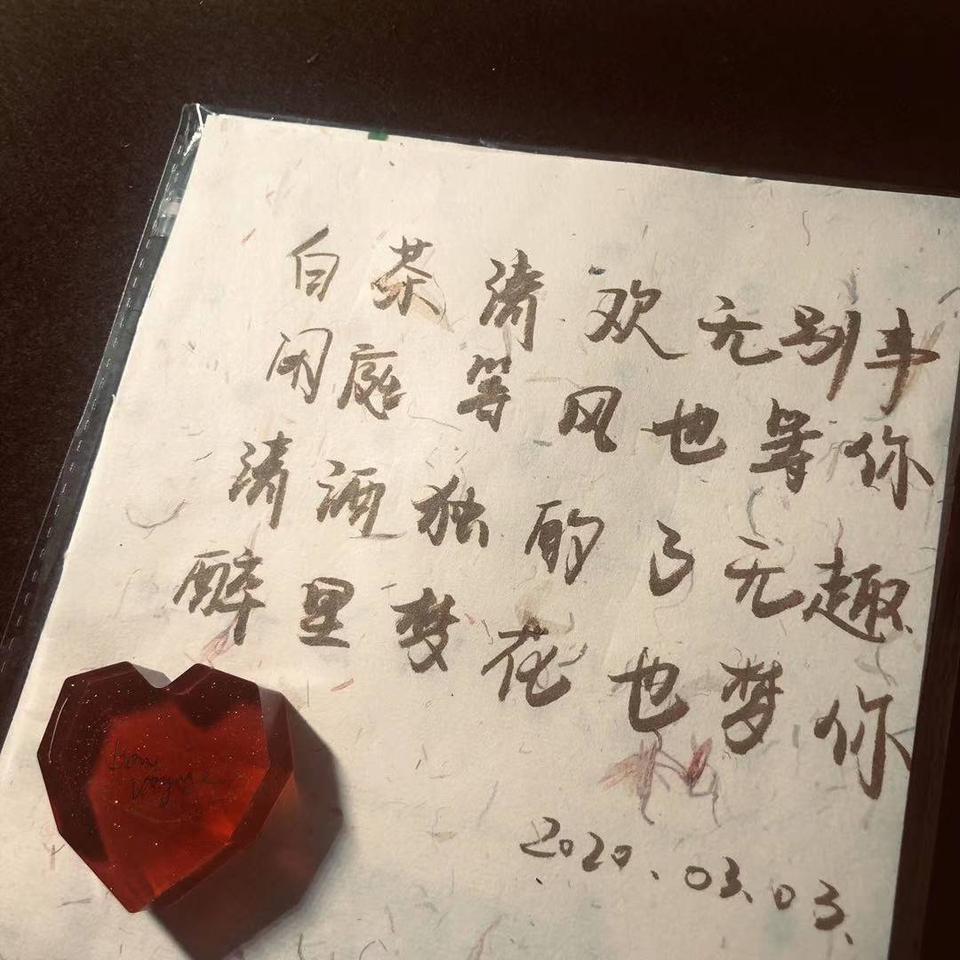 白茶清欢无别事
闲庭等风也等你
清酒独酌了无趣
醉里梦花也梦你
2020.03.03.
Bon
voyage